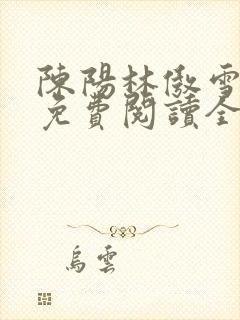 陳陽林傲雪
免費閱讀全
烏雲